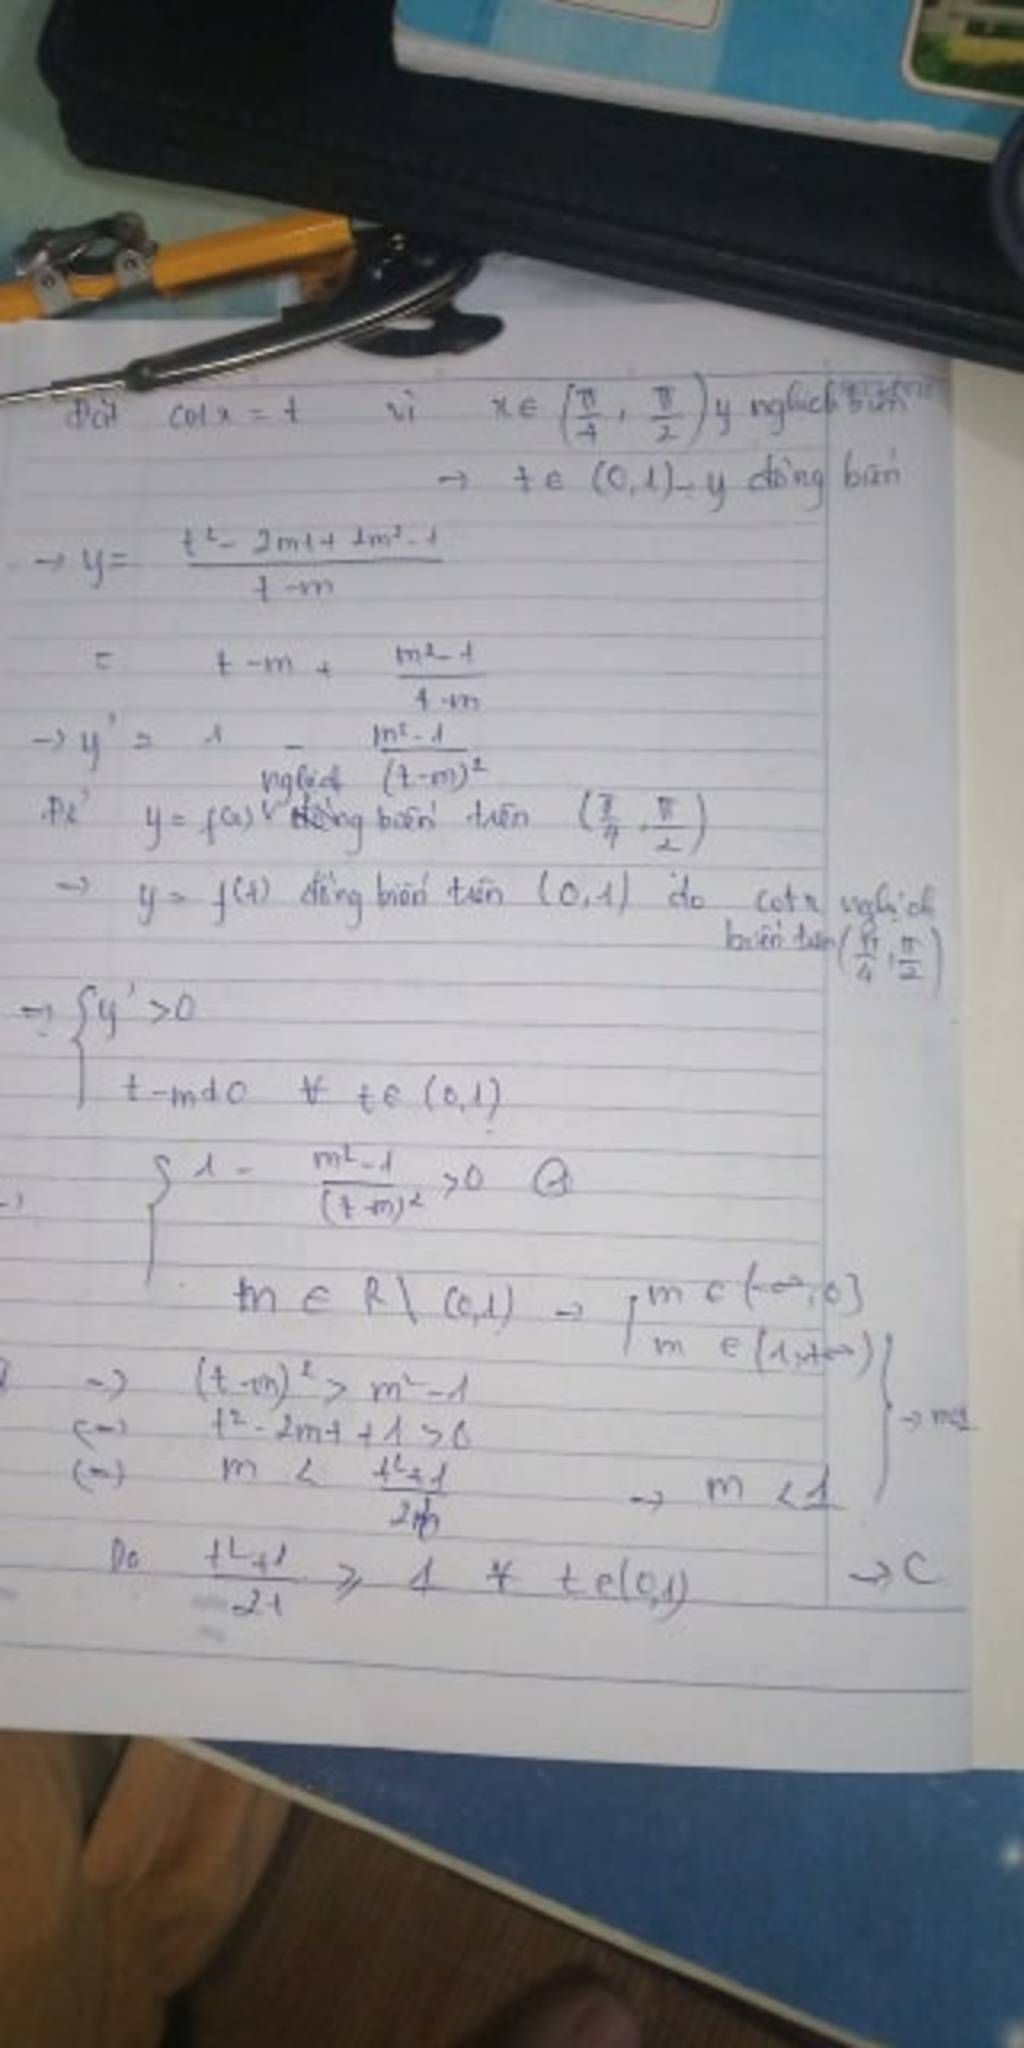 Đặt cotx = t vì x ∈ (π/4, π/2) y nghịch biến
→ t ∈ (0,1) - y đồng biến
→ y = (t² - 2mt + 2m² - 1)/(t - m)
= t - m + (m² - 1)/(t - m)
→ y' = 1 - (m² - 1)/(t - m)²
nghịch
Để y = f(x) biến trên (π/4, π/2)
→ y = f(t) đồng biến trên (0,1) do cotx nghịch
biến trên (π/4, π/2)
→ { y' > 0
t - m ≠ 0 ∀ t ∈ (0,1)
→ { 1 - (m² - 1)/(t - m)² > 0
m ∈ R \ (0,1) → [ m ∈ (-∞, 0]
m ∈ (1, +∞)
→ (t - m)² > m² - 1
(=) t² - 2mt + 1 > 0
(=) m < → m < 1
Do (t² + 1)/2t ≥ 1 ∀ t ∈ (0,1) → C